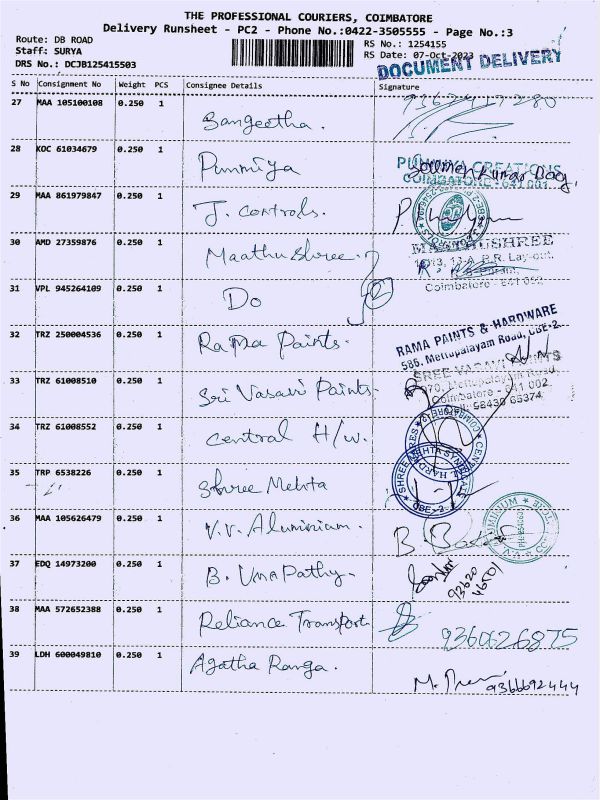 THE PROFESSIONAL COURIERS, COIMBATORE
Delivery Runsheet - PC2 - Phone No.:0422-3505555 - Page No.:3
Route: DB ROAD
Staff: SURYA
DRS No.: DCJB125415503
RS No.: 1254155
RS Date: 07-Oct-2023
DOCUMENT DELIVERY
S No Consignment No Weight PCS Consignee Details Signature
27 MAA 105100108 0.250 1 Sangeetha.
28 KOC 61034679 0.250 1 Punniya
COIMBATORE - 641 001
29 MAA 861979847 0.250 1 J. Controls.
30 AMD 27359876 0.250 1 Maathu Shree.
Coimbatore - 641 002
31 VPL 945264109 0.250 1 Do
32 TRZ 250004536 0.250 1 Rama Paints.
RAMA PAINTS & HARDWARE
586, Mettupalayam Road, CBE-2.
33 TRZ 61008510 0.250 1 Sri Vasavi Paints.
SREE VASAVI PAINTS
Mettupalayam Road,
Coimbatore - 641 002
34 TRZ 61008552 0.250 1 Central H/w.
35 TRP 6538226 0.250 1 Shree Mehta
CBE-2
36 MAA 105626479 0.250 1 V.V. Aluminiam.
37 EDQ 14973200 0.250 1 B. Uma Pathy.
93620
46501
38 MAA 572652388 0.250 1 Reliance Transport
9360626875
39 LDH 600049810 0.250 1 Agatha Ranga.
9366692444